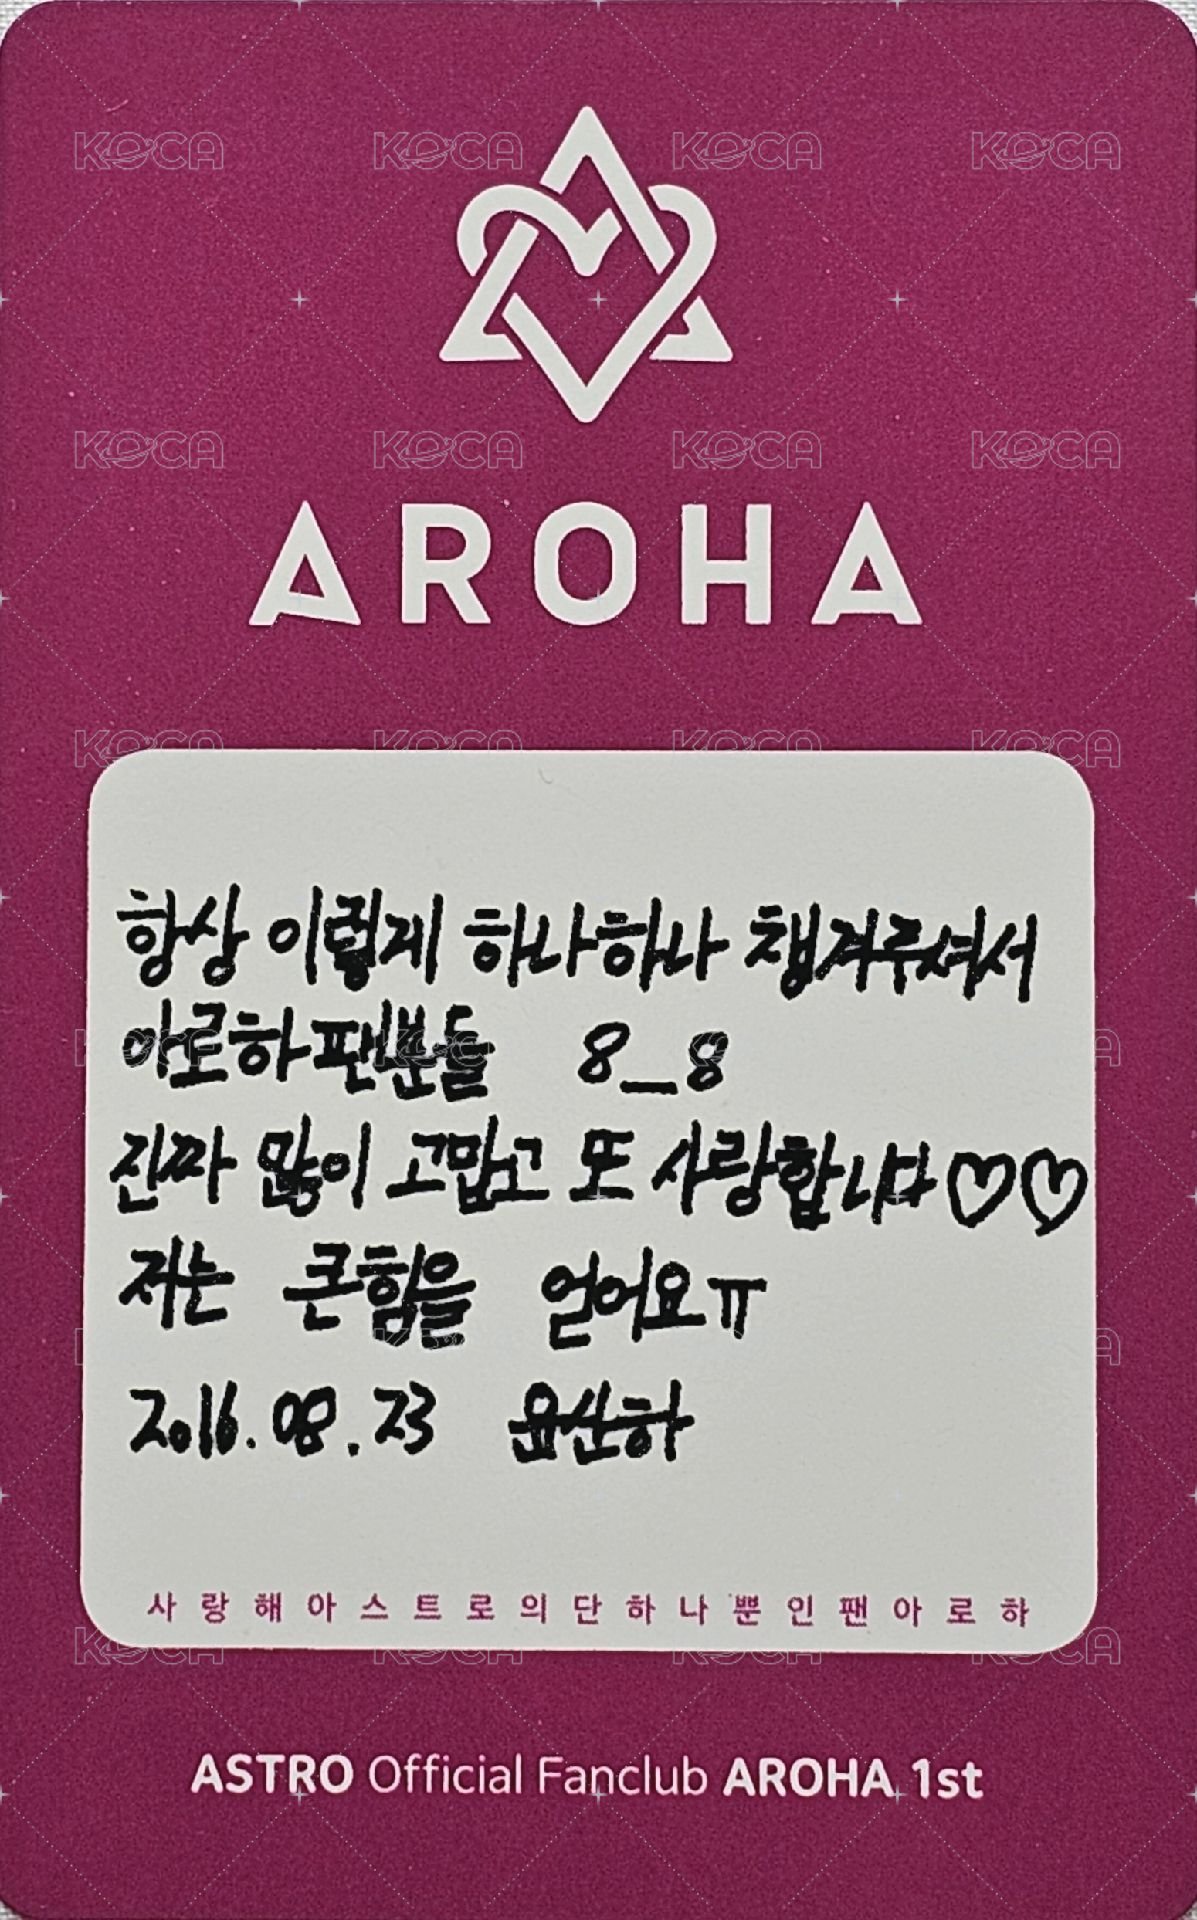 AROHA
항상 이렇게 하나하나 챙겨주셔서
아로하팬뿐들 8_8
진짜 많이 고맙고 또 사랑합니다♡♡
저는 큰힘을 얻어요ㅠ
2016.08.23 윤산하
사랑해아스트로의단하나뿐인팬아로하
ASTRO Official Fanclub AROHA 1st
KOCA